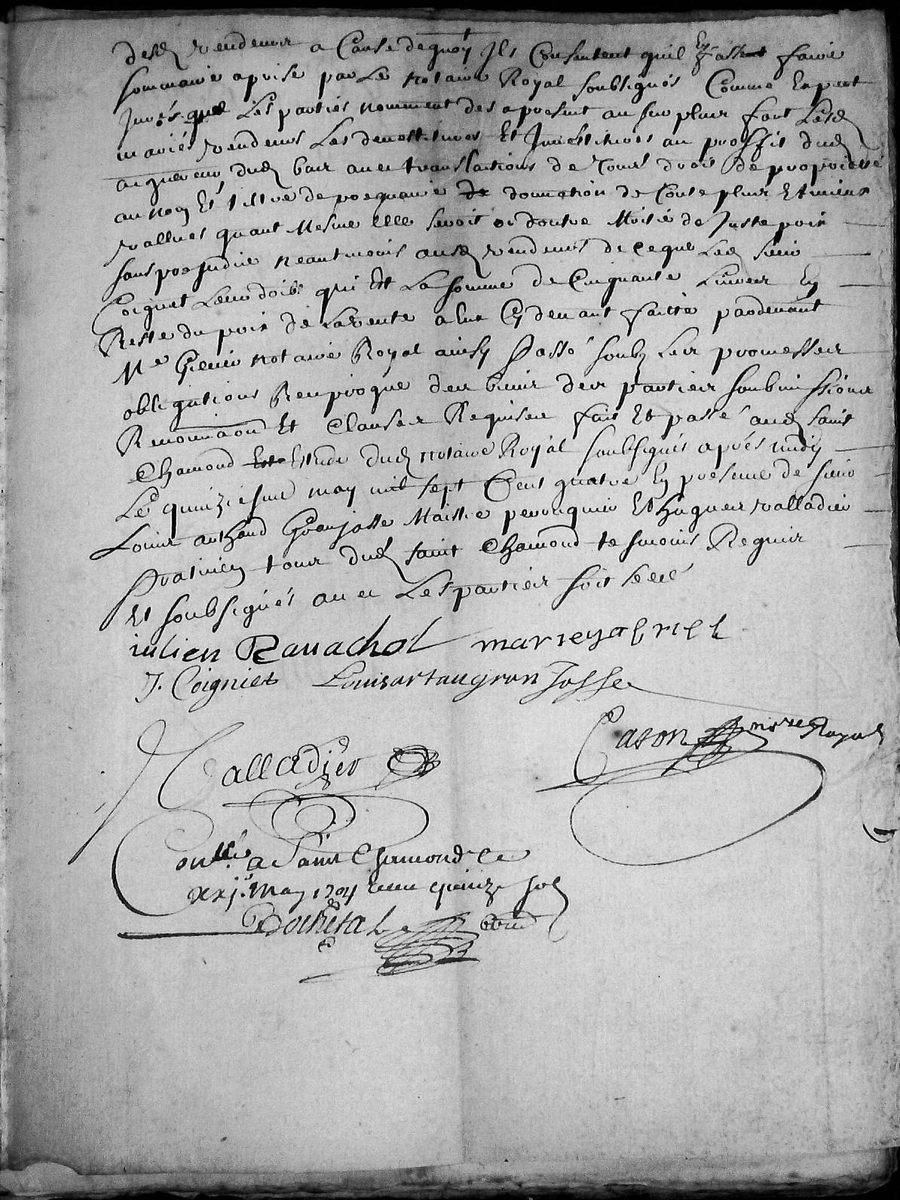 desd vendeurs a Cause dequoy Ils Consentent quil En soit faitte
sommaire aprise par Le notaire Royal soubsignés Comme Expert
Jurés que Les parties nomment des apresent au surplus font Lesd
mariés vendeurs Les devestitures Et Investitures au proffit dud
acquereur dud bail avec translations de tous droit de proprietté
au nom Et tiltre de precaire de donnation de toute plus Et mieux
vallues quant Mesme Elle seroit oi doutre Moitié de Juste prix
sans prejudice neantmoins ausd vendeurs de ce que Led sieur
Coignet Leur doibt qui Est La somme de Cinquante Livres En
Reste du prix de La vente a luy Cy devant faitte pardevant
Me notaire Royal ainsy passé soubz Leur promesses
obligations Reciproque des biens des parties soubmissions
Renonciaon Et Clauses Requises fait Et passé aud saint
Chamond Est Estude dud notaire Royal soubsignés aprés midy
Le quinziesme may mil sept Cent quatre En presence de sieur
Louis arthaud Granjasse Maistre perruquier Et hugues valladier
praticien tous dud saint Chamond tesmoins Requis
Et soubsignés avec Les parties soit seelé
iulien Ravachol marieyabriel
J. Coigniet Louisartaugranjasse
Valladier Cason nore Royal
Conllé a Saint Chamond Le
xxje. May 1704 Receu quinze sols
Bochetal